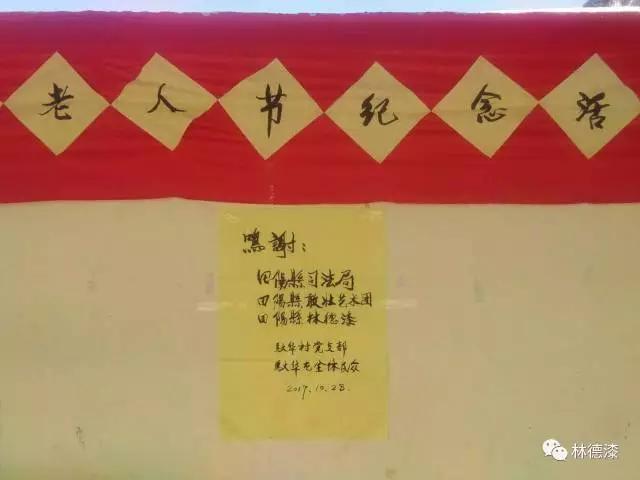 老人节纪念活
鳴謝：
田陽縣司法局
田陽縣敢壮艺术团
田陽縣林德漆
驮华村党支部
驮华屯全体民众
2017.10.28.
林德漆